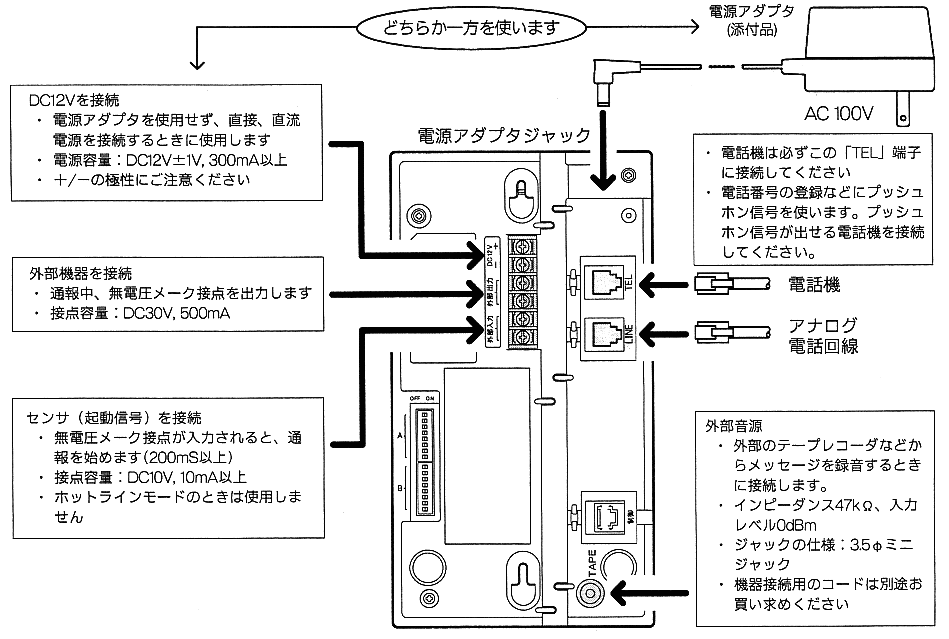 どちらか一方を使います
電源アダプタ
(添付品)
AC 100V
DC12Vを接続
・ 電源アダプタを使用せず、直接、直流
電源を接続するときに使用します
・ 電源容量：DC12V±1V, 300mA以上
・ ＋/−の極性にご注意ください
電源アダプタジャック
・ 電話機は必ずこの「TEL」端子
に接続してください
・ 電話番号の登録などにプッシュ
ホン信号を使います。プッシュ
ホン信号が出せる電話機を接続
してください。
外部機器を接続
・ 通報中、無電圧メーク接点を出力します
・ 接点容量：DC30V, 500mA
DC12V
＋
−
外部出力
外部入力
TEL
LINE
電話機
アナログ
電話回線
センサ（起動信号）を接続
・ 無電圧メーク接点が入力されると、通
報を始めます(200mS以上)
・ 接点容量：DC10V, 10mA以上
・ ホットラインモードのときは使用しま
せん
OFF ON
A
B
制御
TAPE
外部音源
・ 外部のテープレコーダなどか
らメッセージを録音するとき
に接続します。
・ インピーダンス47kΩ、入力
レベル0dBm
・ ジャックの仕様：3.5φミニ
ジャック
・ 機器接続用のコードは別途お
買い求めください